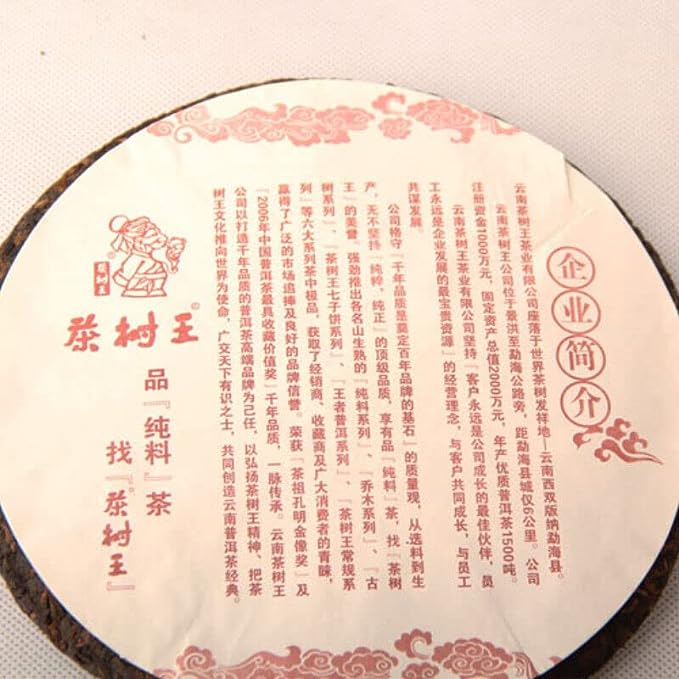 企业简介
云南茶树王茶业有限公司座落于世界茶树发祥地—云南西双版纳勐海县。
云南茶树王公司位于景洪至勐海公路旁，距勐海县城仅6公里。公司
注册资金1000万元，固定资产总值2000万元，年产优质普洱茶1500吨。
云南茶树王茶业有限公司坚持『客户永远是公司成长的最佳伙伴，员
工永远是企业发展的最宝贵资源』的经营理念，与客户共同成长，与员工
共谋发展。
公司格守『千年品质是奠定百年品牌的基石』的质量观，从选料到生
产，无不坚持『纯粹、纯正』的顶级品质，享有品『纯料』茶，找『茶树
王』的美誉。强劲推出各名山生熟的『纯料系列』、『乔木系列』、『古
树系列』、『茶树王七子饼系列』、『王者普洱系列』、『茶树王常规系
列』等六大系列茶中极品，获取了经销商、收藏商及广大消费者的青睐，
赢得了广泛的市场追捧及良好的品牌信誉。荣获『茶祖孔明金像奖』及
『2006年中国普洱茶最具收藏价值奖』千年品质，一脉传承。云南茶树王
公司以打造千年品质的普洱茶高端品牌为己任，以弘扬茶树王精神、把茶
树王文化推向世界为使命，广交天下有识之士，共同创造云南普洱茶经典。
茶树王
®
茶树王
®
品『纯料』茶
找『茶树王』